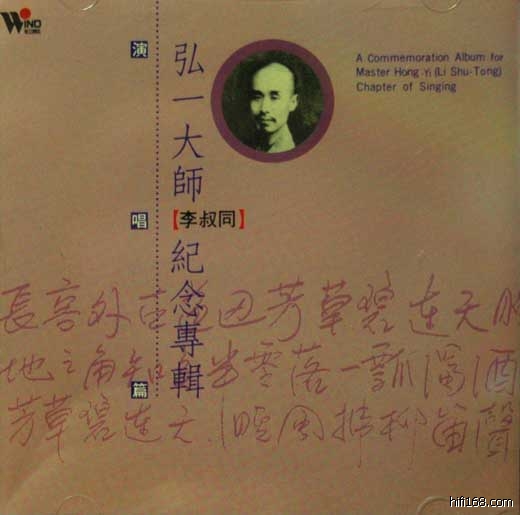 WIND
A Commemoration Album for
Master Hong-Yi (Li Shu-Tong)
Chapter of Singing
演唱篇
弘一大師
【李叔同】
紀念專輯
長亭外古边芳草碧连天
地之角知半零落一瓢濁酒
芳草碧连天晚風拂柳笛聲
hifi168.com